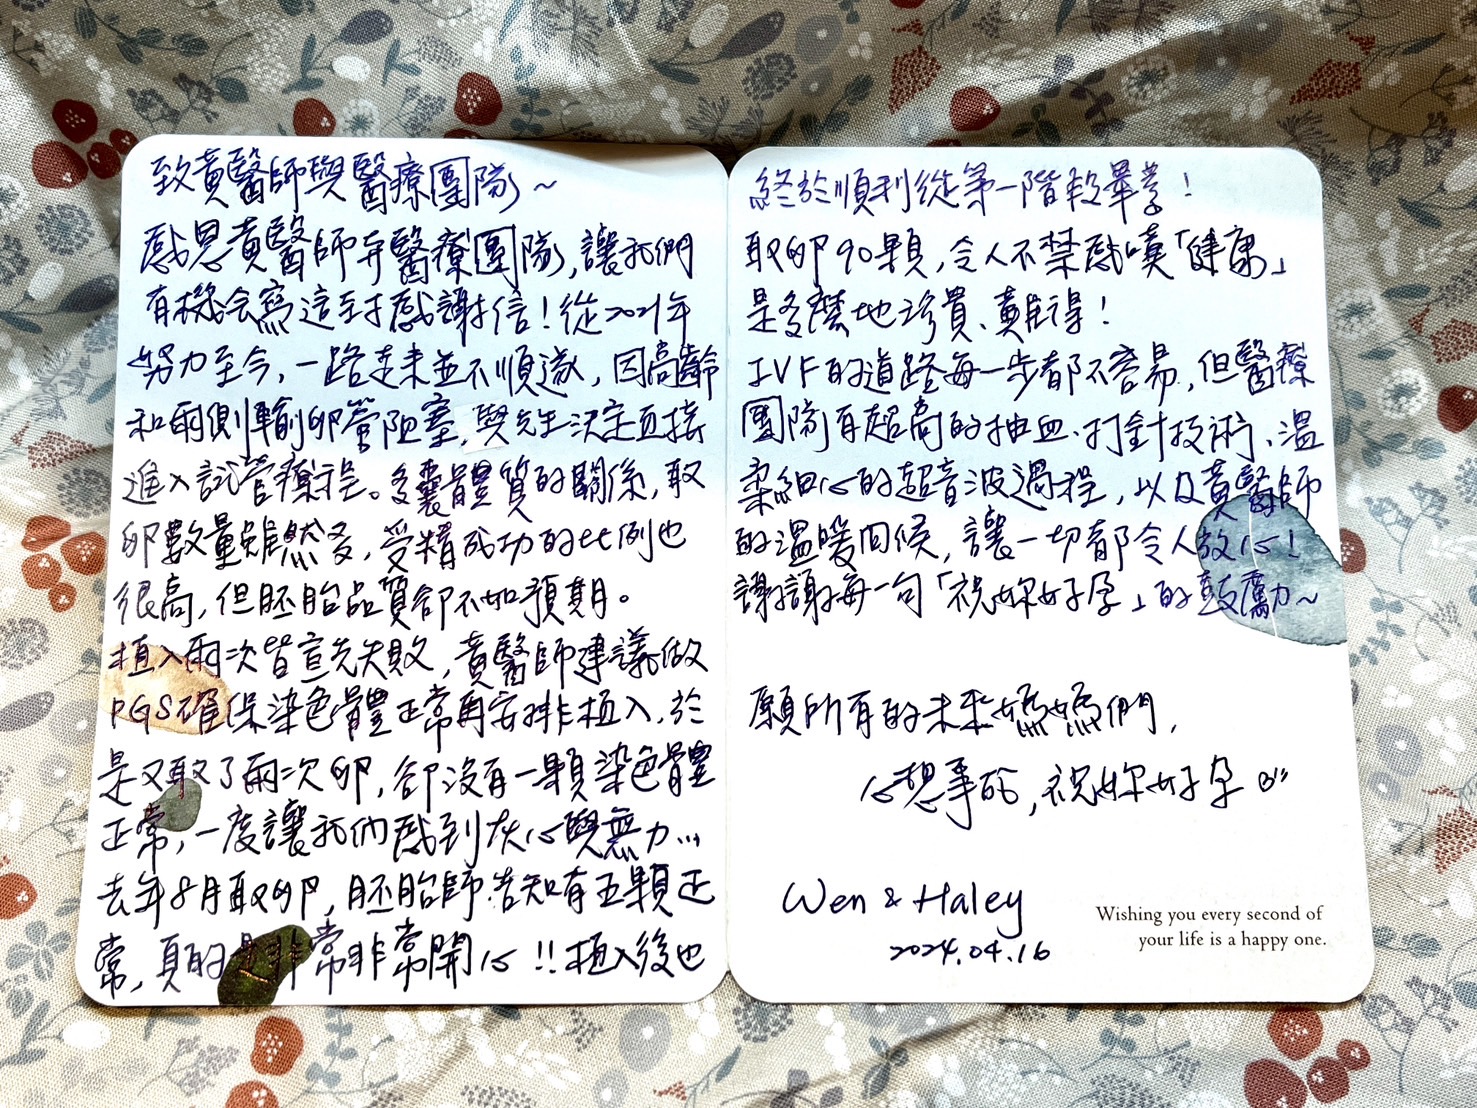 致黃醫師與醫療團隊~
感恩黃醫師與醫療團隊,讓我們
有機会寫這封感謝信!從2021年
努力至今,一路走來並不順遂,因高齡
和兩側輸卵管阻塞,與先生決定直接
進入試管療程。多囊體質的關係,取
卵數量雖然多,受精成功的比例也
很高,但胚胎品質卻不如預期。
植入兩次皆宣告失敗,黃醫師建議做
PGS確保染色體正常再安排植入,於
是又取了兩次卵,卻沒有一顆染色體
正常,一度讓我們感到灰心與無力...
去年8月取卵,胚胎師告知有五顆正
常,真的是非常非常開心!!植入後也
終於順利從第一階段畢業!
取卵90顆,令人不禁感嘆「健康」
是多麼地珍貴、難得!
IVF的道路每一步都不容易,但醫療
團隊有超高的抽血、打針技術、溫
柔細心的超音波過程,以及黃醫師
的溫暖問候,讓一切都令人放心!
謝謝每一句「祝妳好孕」的鼓勵~
願所有的未來媽媽們,
心想事成,祝妳好孕
Wen & Haley
2024.04.16
Wishing you every second of
your life is a happy one.